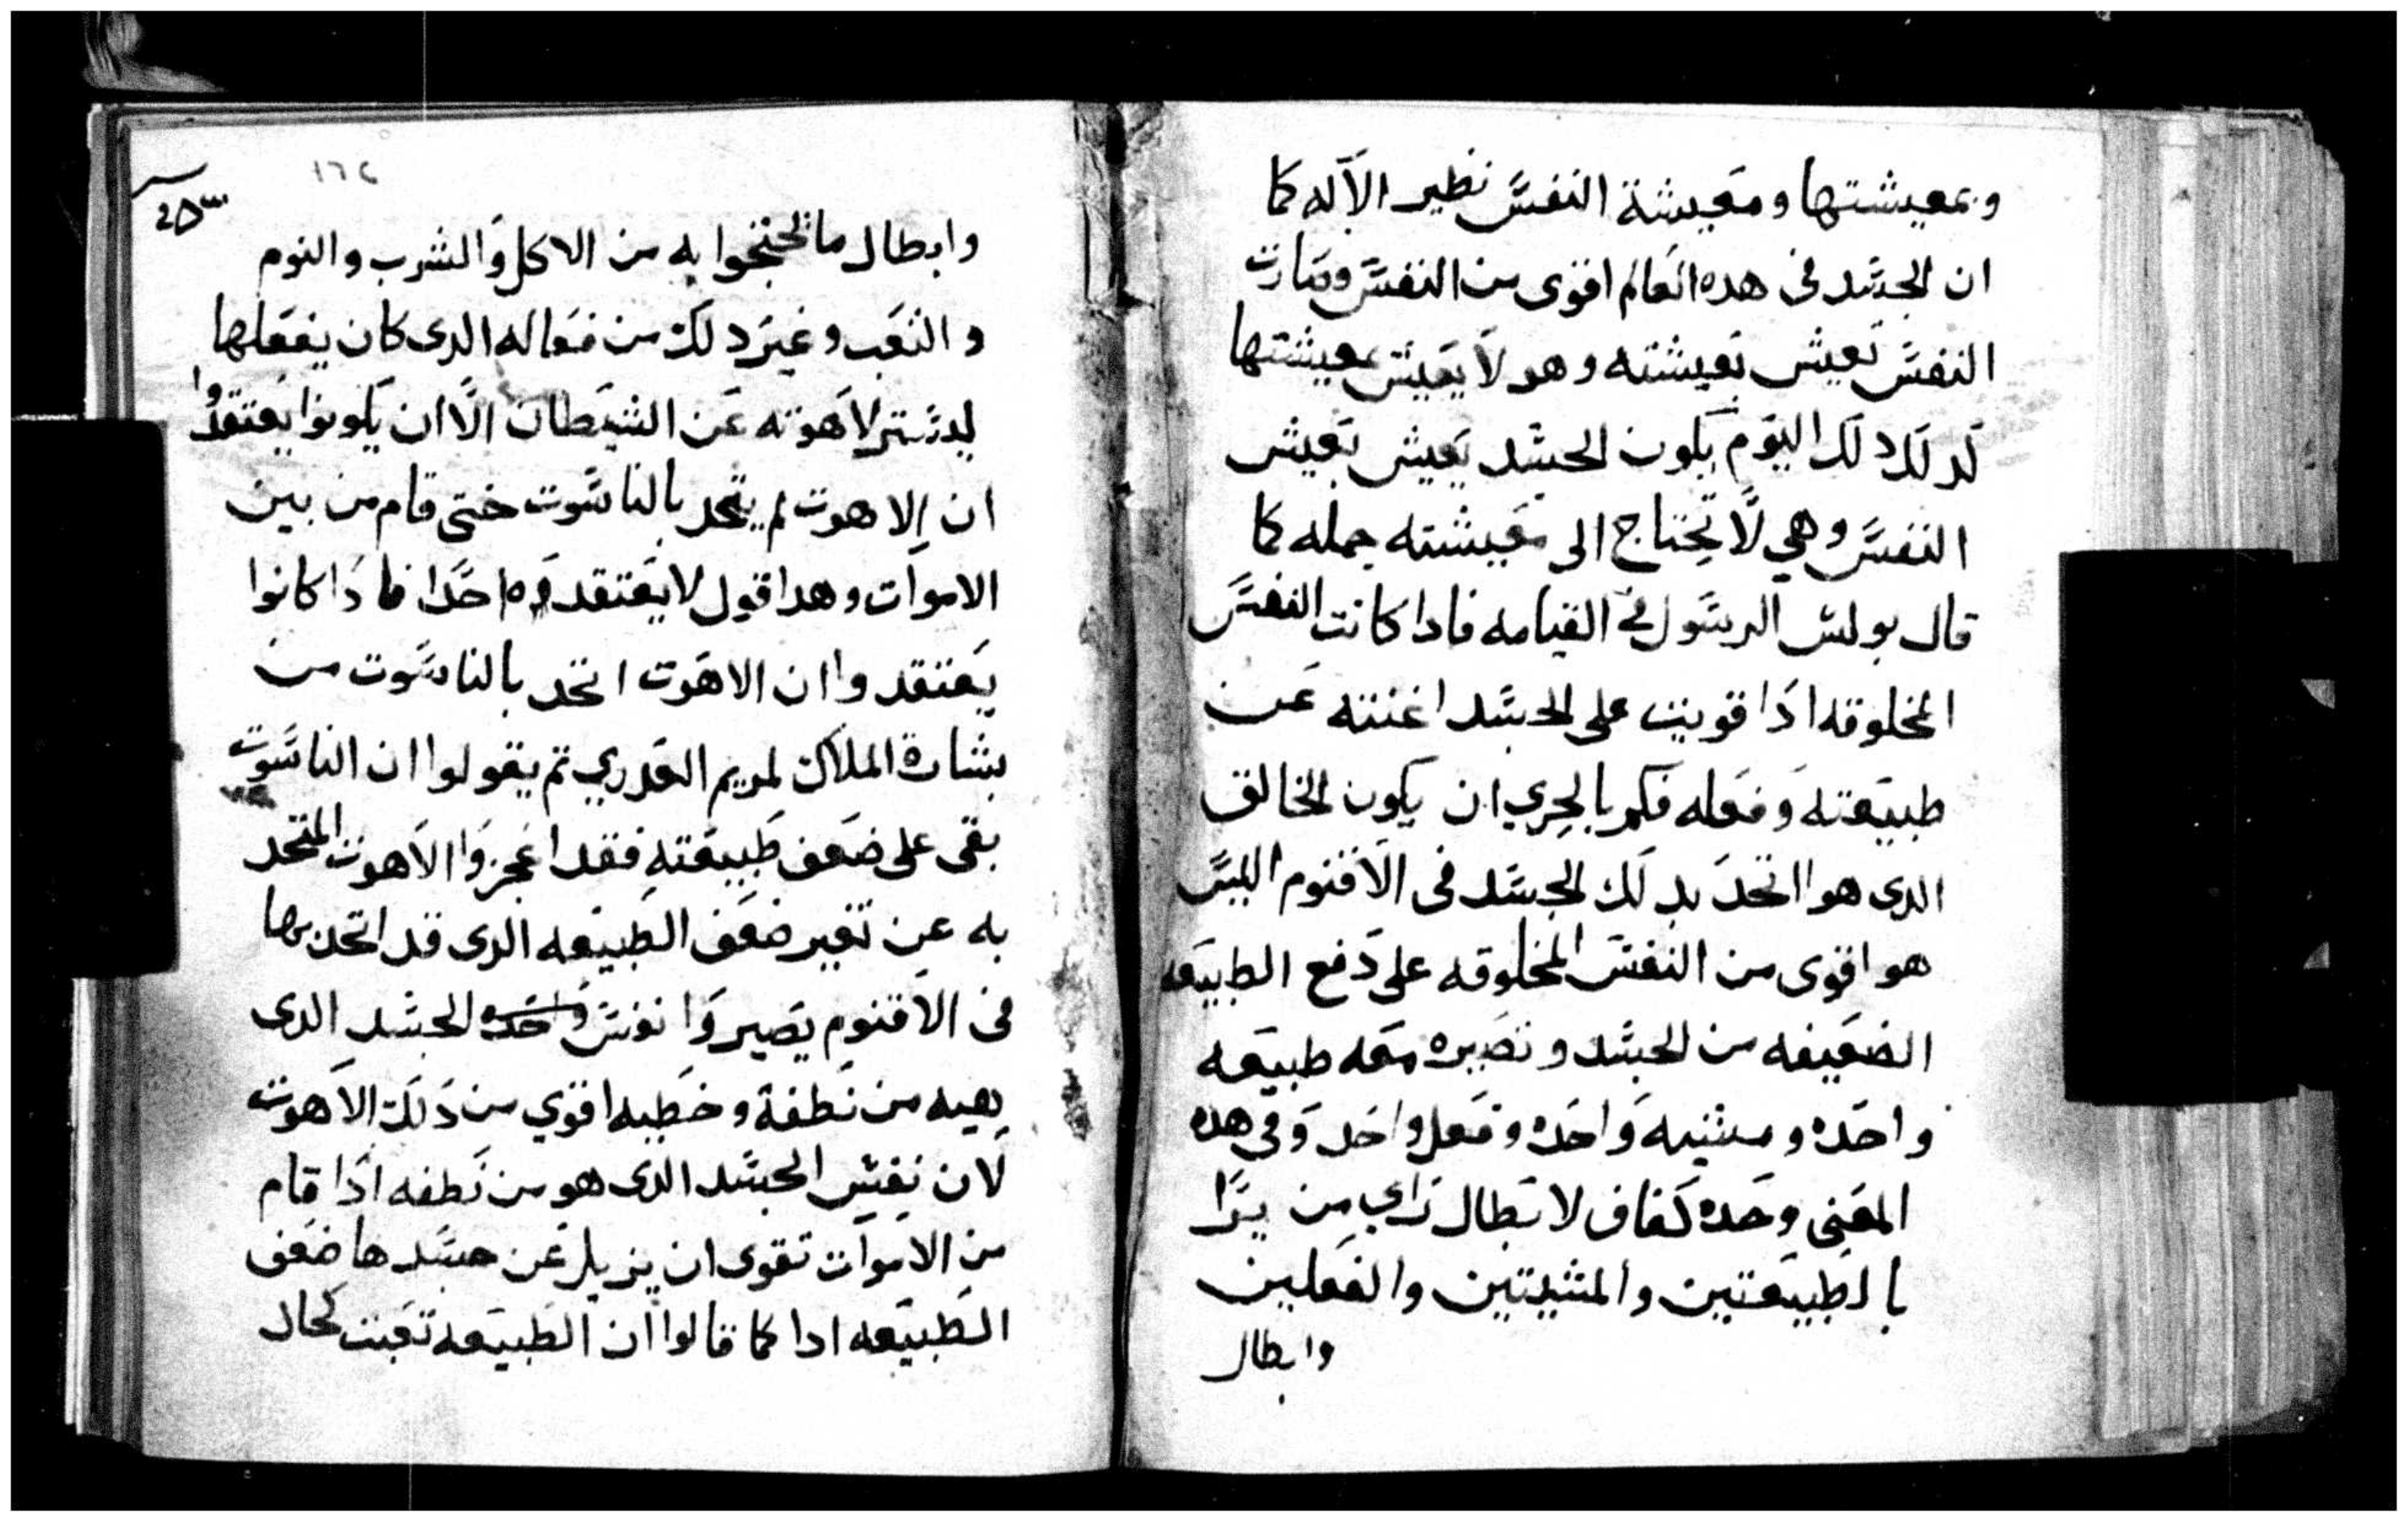 وبمعيشتها ومعيشة النفس نظير الآله كما
ان الجسد فى هده العالم اقوى من النفس وصارت
النفس تعيش بعيشته وهو لا يعيش بمعيشتها
لدلك دلك اليوم يكون الجسد يعيش بعيش
النفس وهي لا تحتاج الى معيشته جمله كما
قال بولس الرسول في القيامه فادا كانت النفس
المخلوقه ادا قويت على الجسد اغنته عن
طبيعته وفعله فكم بالحري ان يكون الخالق
الدى هو اتحد بدلك الجسد فى الاقنوم اليس
هو اقوى من النفس المخلوقه على دفع الطبيعه
الضعيفه من الجسد وتصيره معه طبيعه
واحده ومشيه واحده وفعل واحد وفى هده
المعنى وحده كفاف لابطال راي من يرا
بالطبيعتين والمشيتين والفعلين
وابطال
١٦٤
وابطال ما تحتجوا به من الاكل والشرب والنوم
والتعب وغير دلك من فعاله الدى كان يفعلها
ليستتر لاهوته عن الشيطان الا ان يكونوا يعتقدوا
ان الاهوت لم يتحد بالناسوت حتى قام من بين
الاموات وهدا قول لا يعتقدوه احدا فادا كانوا
يعتقدوا ان الاهوت اتحد بالناسوت من
بشارة الملاك لمريم العدري تم يقولوا ان الناسوت
بقى على ضعف طبيعته فقد اعجزوا الاهوت المتحد
به عن تغير ضعف الطبيعه الدى قد اتحد بها
فى الاقنوم يصيروا نفس واحده الجسد الدى
من نطفة وخطيه اقوي من دلك الاهوت
لان نفس الجسد الدى هو من نطفه ادا قام
من الاموات تقوى ان يزيل عن جسدها ضعف
الطبيعه ادا كما قالوا ان الطبيعه تبت كحال